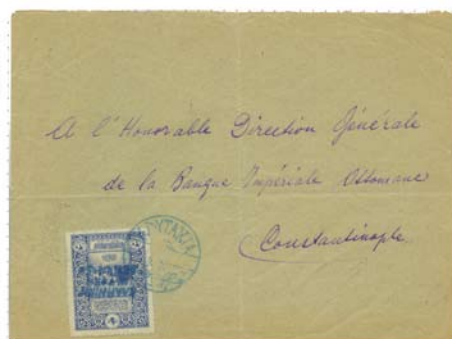 A l'Honorable Direction Générale
de la Banque Impériale Ottomane
Constantinople